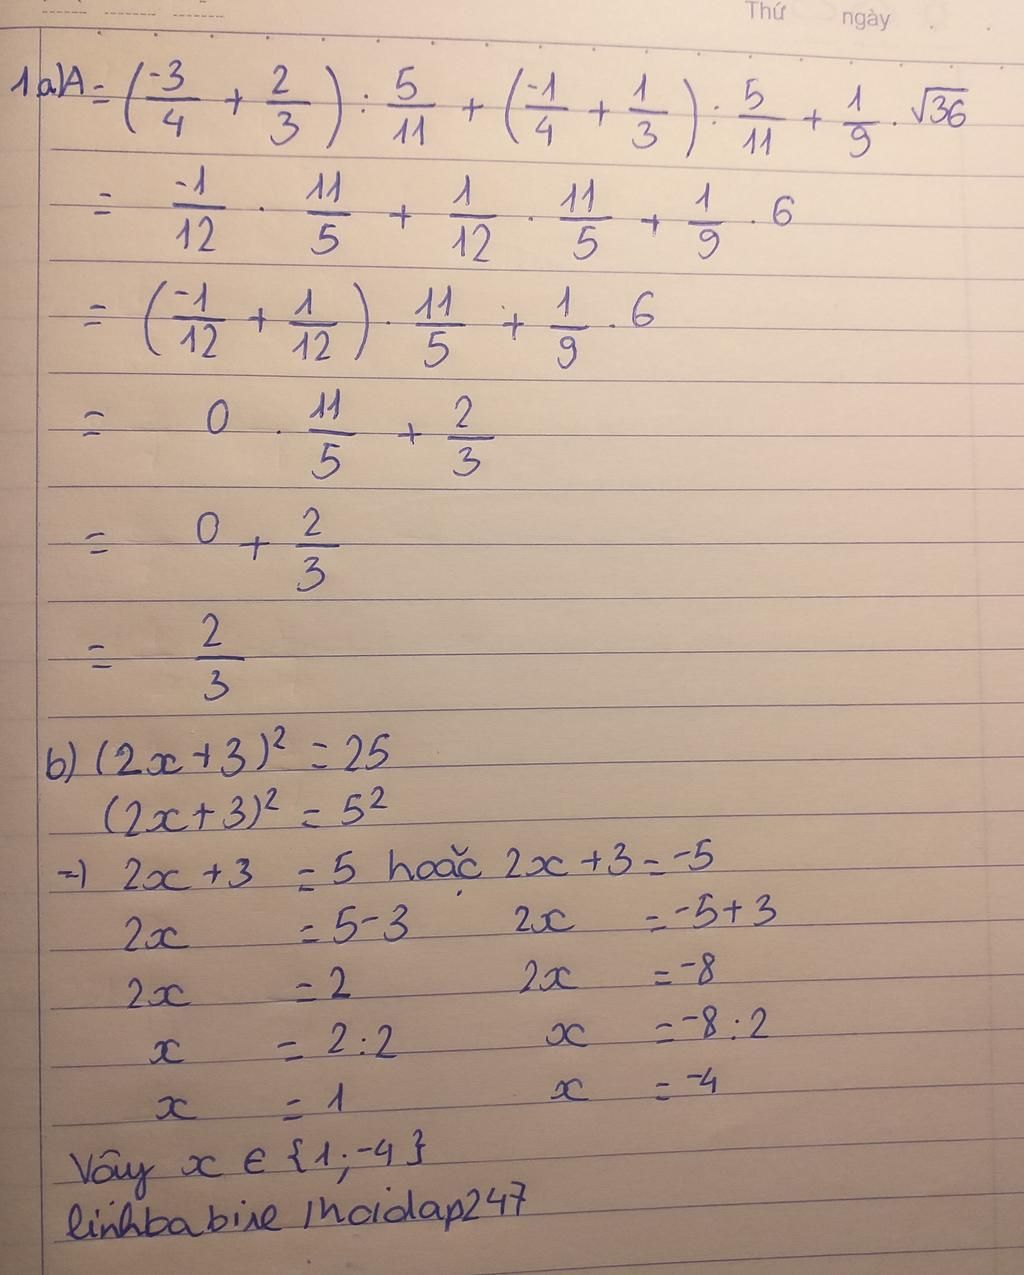 Thứ ngày
1a) A = (-3/4 + 2/3) : 5/11 + (-1/4 + 1/3) : 5/11 + 1/9 . √36
= -1/12 . 11/5 + 1/12 . 11/5 + 1/9 . 6
= (-1/12 + 1/12) . 11/5 + 1/9 . 6
= 0 . 11/5 + 2/3
= 0 + 2/3
= 2/3
b) (2x+3)² = 25
(2x+3)² = 5²
=) 2x+3 = 5 hoặc 2x+3 = -5
2x = 5-3 2x = -5+3
2x = 2 2x = -8
x = 2:2 x = -8:2
x = 1 x = -4
Vậy x ∈ {1;-4}